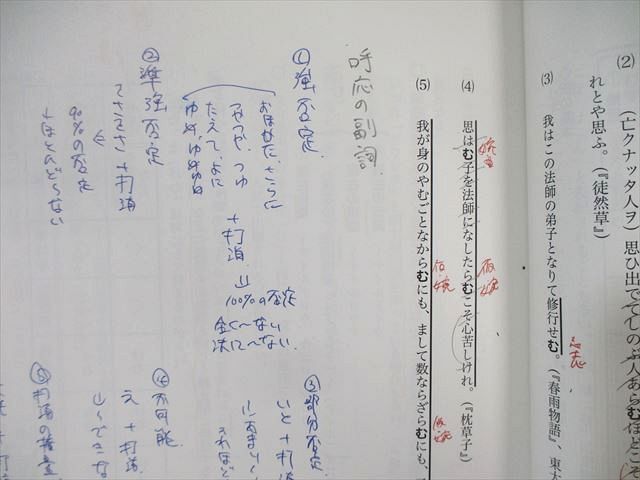 (2)（亡クナッタ人ヲ）思ひ出でてしのぶ人あらむほどこそ
れとや思ふ。（『徒然草』）
(3) 我はこの法師の弟子となりて修行せむ。（『春雨物語』、東大
意志
(4) 思はむ子を法師になしたらむこそ心苦しけれ。（『枕草子』）
婉曲
仮
婉
(5) 我が身のやむごとなからむにも、まして数ならざらむにも、
仮・婉
仮・婉
呼応の副詞
① 強否定
おほかた、さらに
つやつや、つゆ
たえて、よに
ゆめ、ゆめゆめ
＋打消
100%の否定
全く〜ない
決して〜ない
② 準強否定
てさらさら＋打消
90%の否定
ほとんど〜ない
③ 部分否定
いと＋打消
あまり〜
それほど
④ 不可能
え＋打消
〜できな
⑤ 打消の